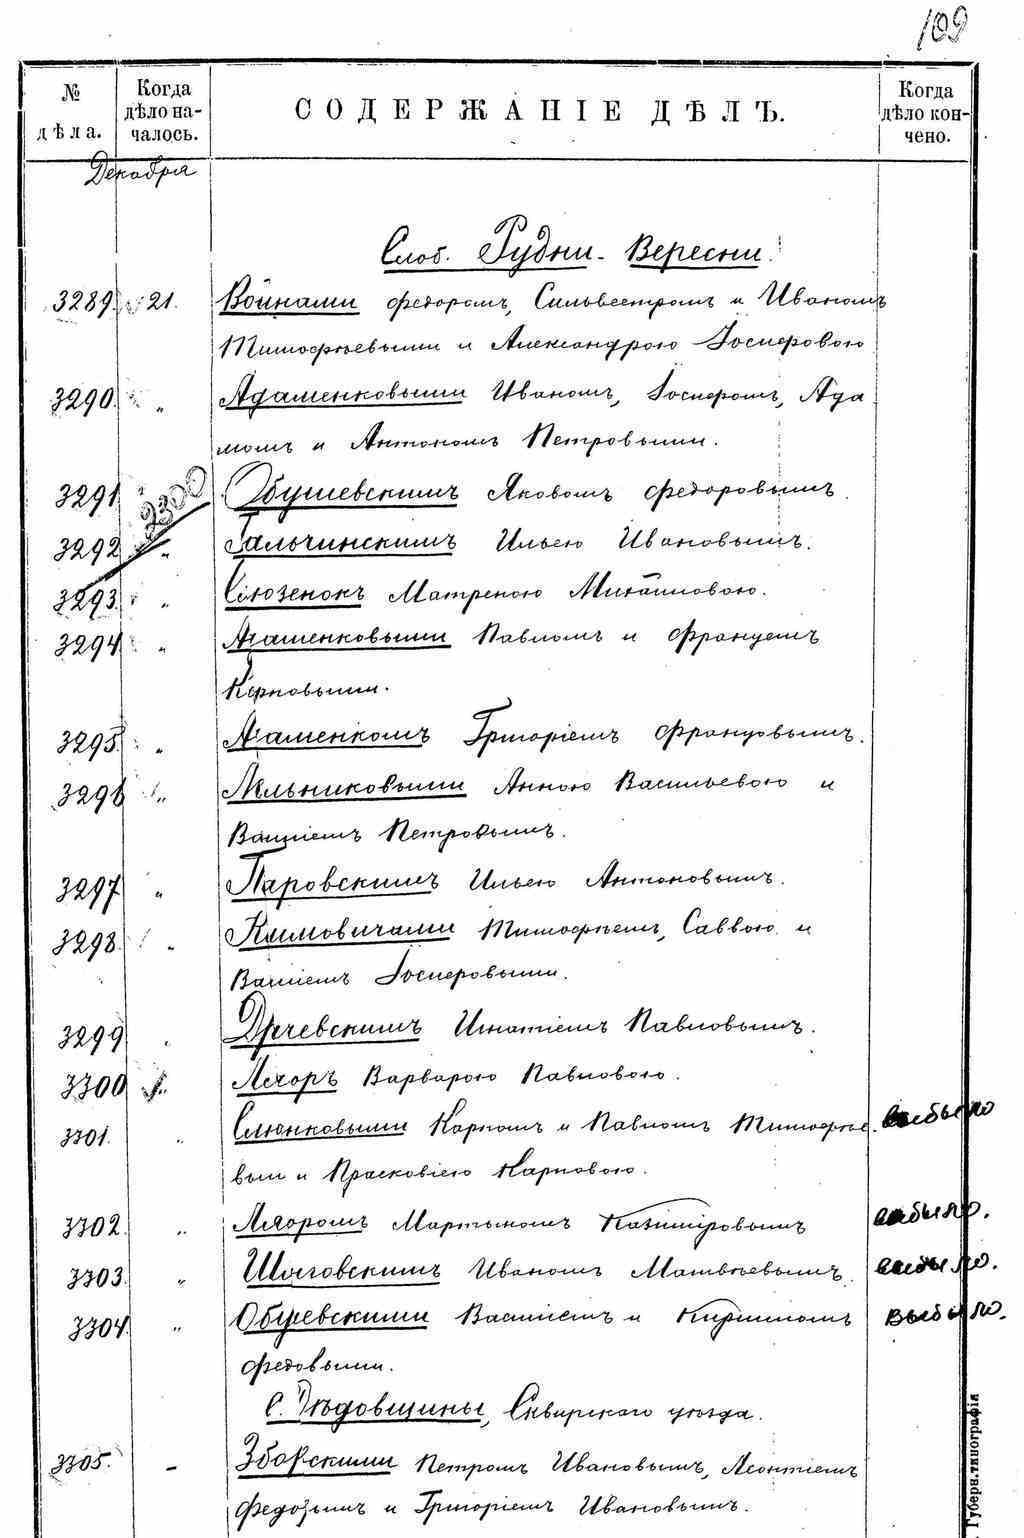 109
№ дѣла.
Когда дѣло на-
чалось.
СОДЕРЖАНІЕ ДѢЛЪ.
Когда дѣло кон-
чено.
Декабря
Слоб. Рудни-Вересни.
3289. 21. Войнами Федоромъ, Сильвестромъ и Иваномъ
Тимофѣевыми и Александрою Іосифовою
3290. „ Адаменковыми Иваномъ, Іосифомъ, Ада
момъ и Антономъ Петровыми.
3291 Обушевскимъ Яковомъ Федоровымъ.
3300
3292 „ Гальчинскимъ Ильею Ивановымъ.
3293. „ Матреною Михайловою.
3294 „ Павломъ и Францемъ
Карповыми.
3295. „ Григоріемъ Францовымъ.
3296 „ Мельниковыми Анною Васильевою и
Василіемъ Петровымъ.
3297 „ Паровскимъ Ильею Антоновымъ.
3298. „ Климовичами Тимофѣемъ, Саввою и
Василіемъ Іосифовыми.
3299 Игнатіемъ Павловымъ.
3300 „ Варварою Павловою.
3301. „ Карпомъ и Павломъ Тимофѣе выбыло
выми и Прасковіею Карповою.
3302. „ Мартыномъ Казиміровымъ выбыло.
3303. „ Иваномъ Матвѣевымъ. выбыло.
3304. „ Василіемъ и Кирилломъ выбыло.
С. Дѣдовщины, Сквирскаго уѣзда.
3305. – Зборскими Петромъ Ивановымъ, Леонтіемъ
и Григоріемъ Ивановымъ.
Губерн. типографія